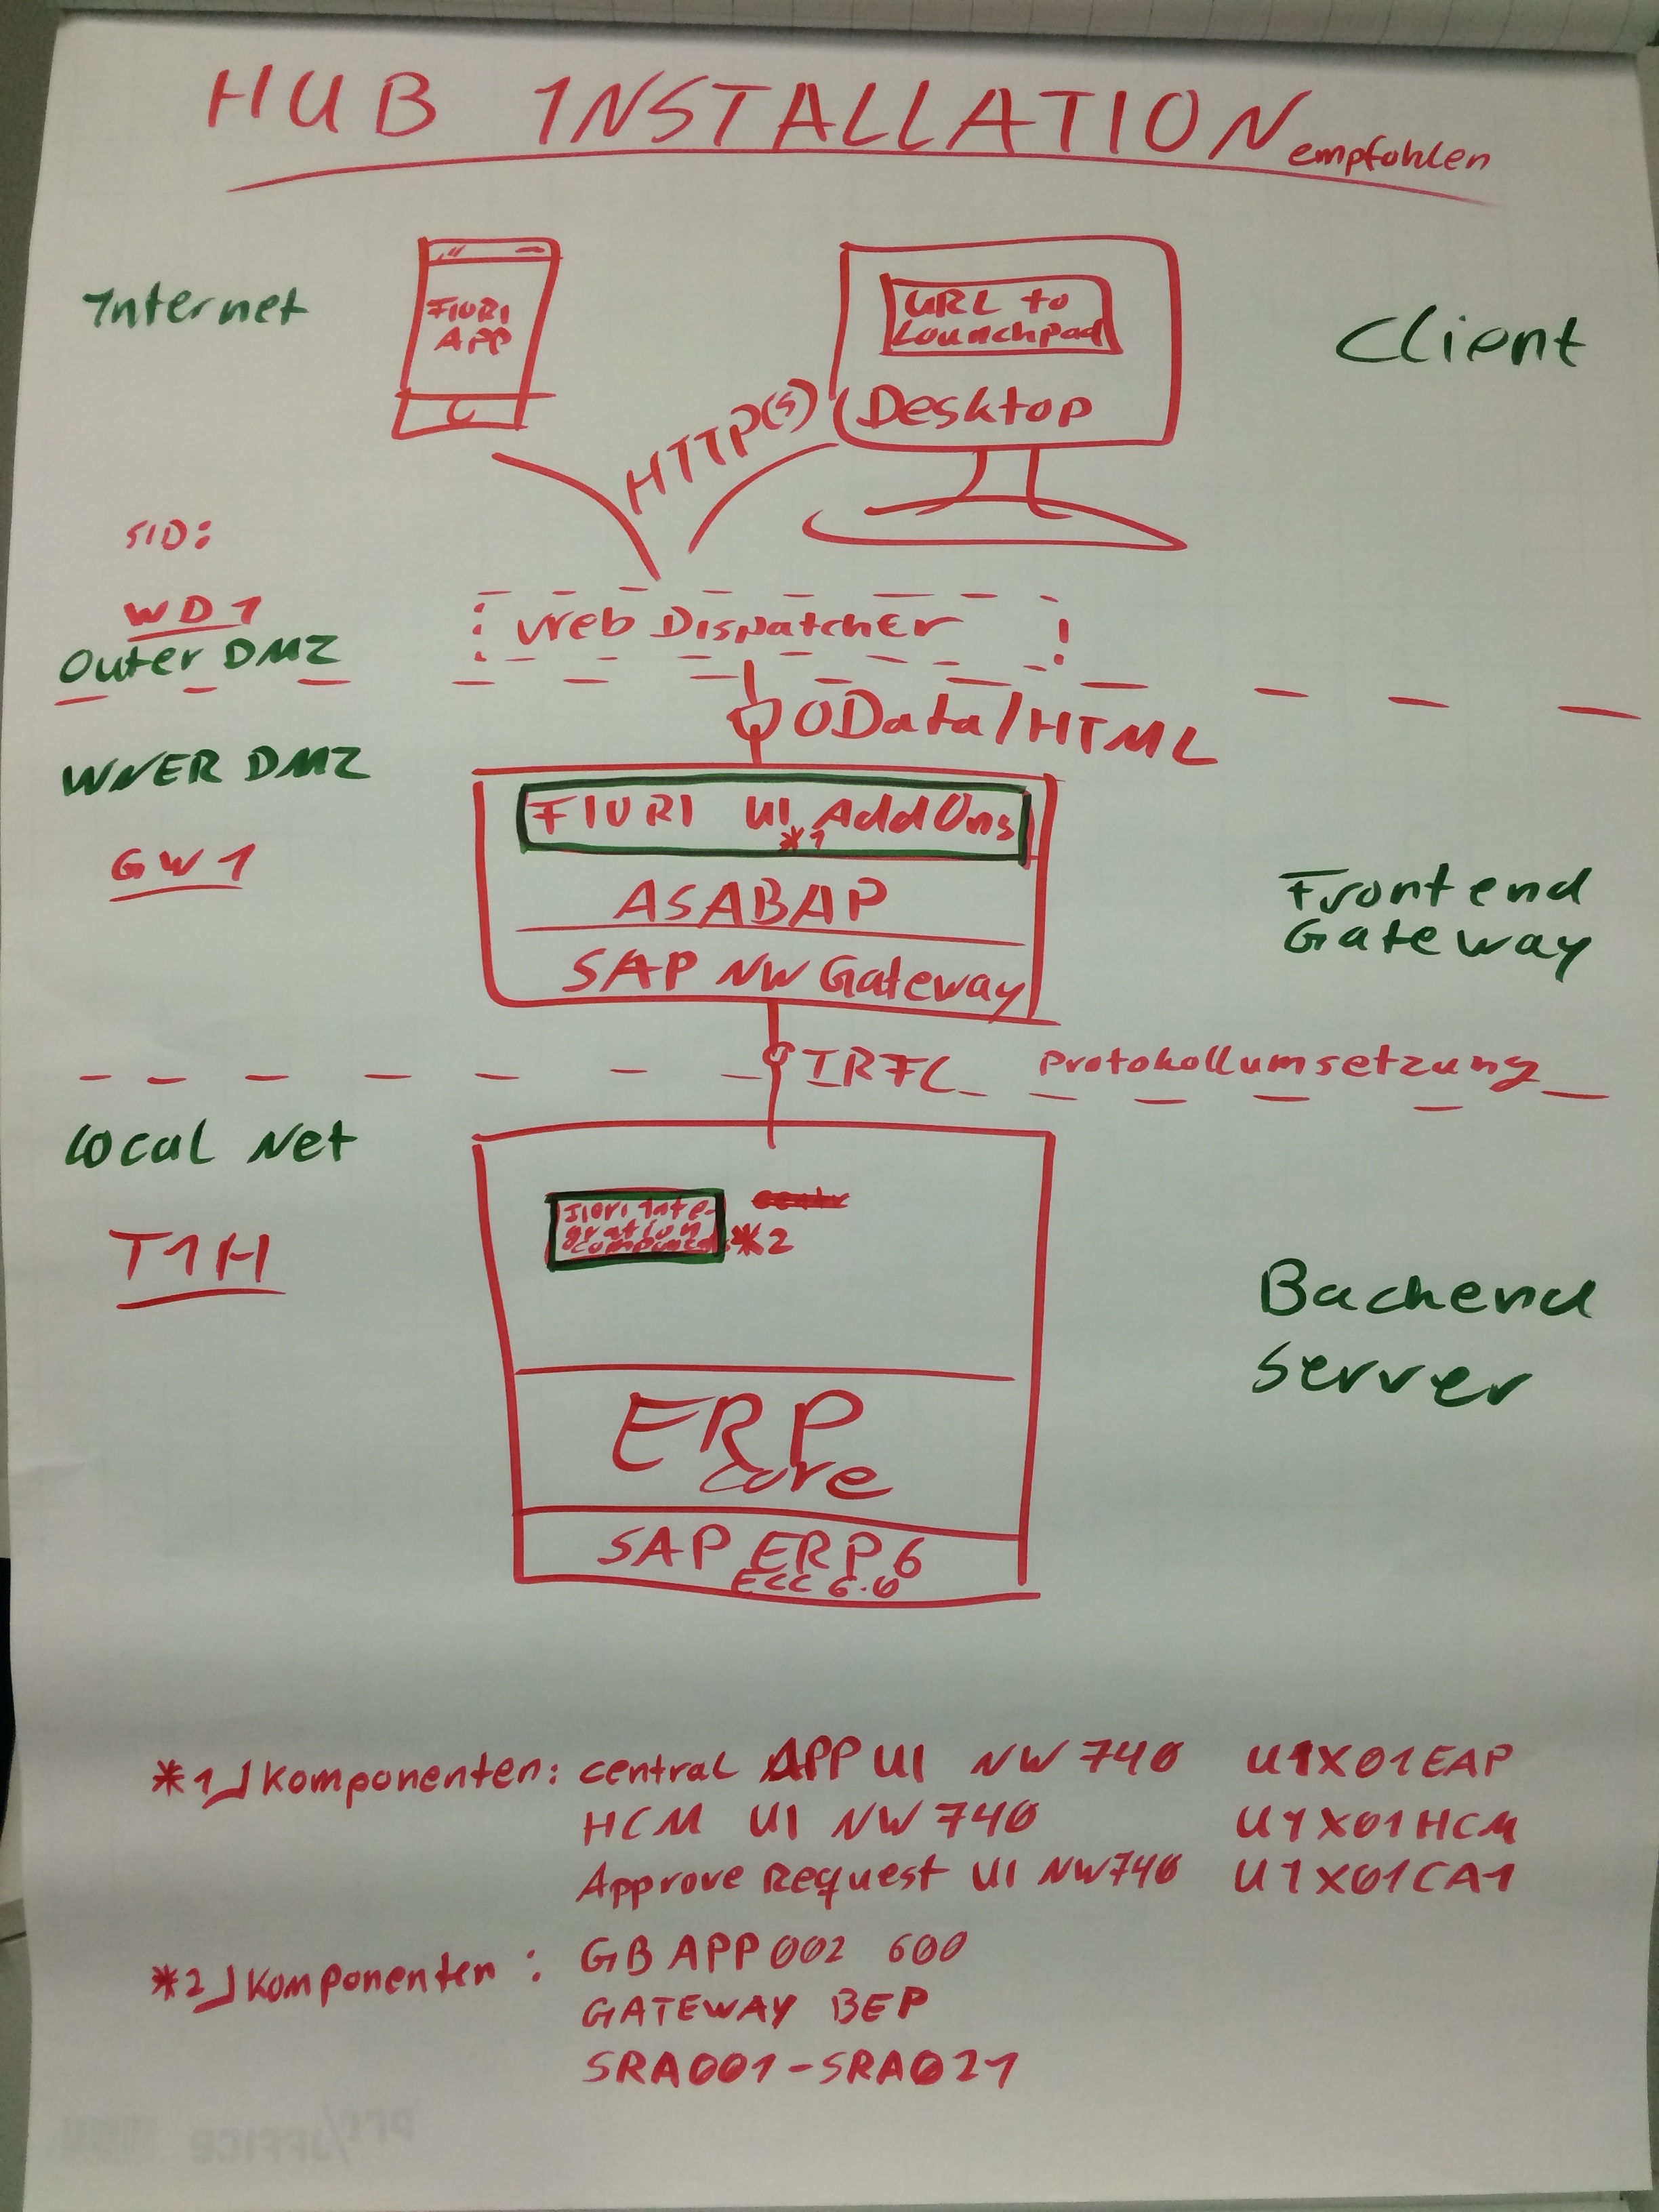 HUB INSTALLATION empfohlen
Internet
FIURI
APP
URL to
Lounchpad
Desktop
Client
HTTP(s)
SID:
WD1
Web Dispatcher
Outer DMZ
OData/HTML
INNER DMZ
FIURI UI AddOns
*1
GW1
ASABAP
SAP NW Gateway
Frontend
Gateway
TRFC Protokollumsetzung
Local Net
Fiori Inte-
gration
Components *2
T1H
Backend
Server
ERP
core
SAP ERP 6
ECC 6.0
*1) Komponenten: central APP UI NW 740 UIX01EAP
HCM UI NW 740 UIX01HCM
Approve Request UI NW740 UIX01CA1
*2) Komponenten: GBAPP002 600
GATEWAY BEP
SRA001-SRA021